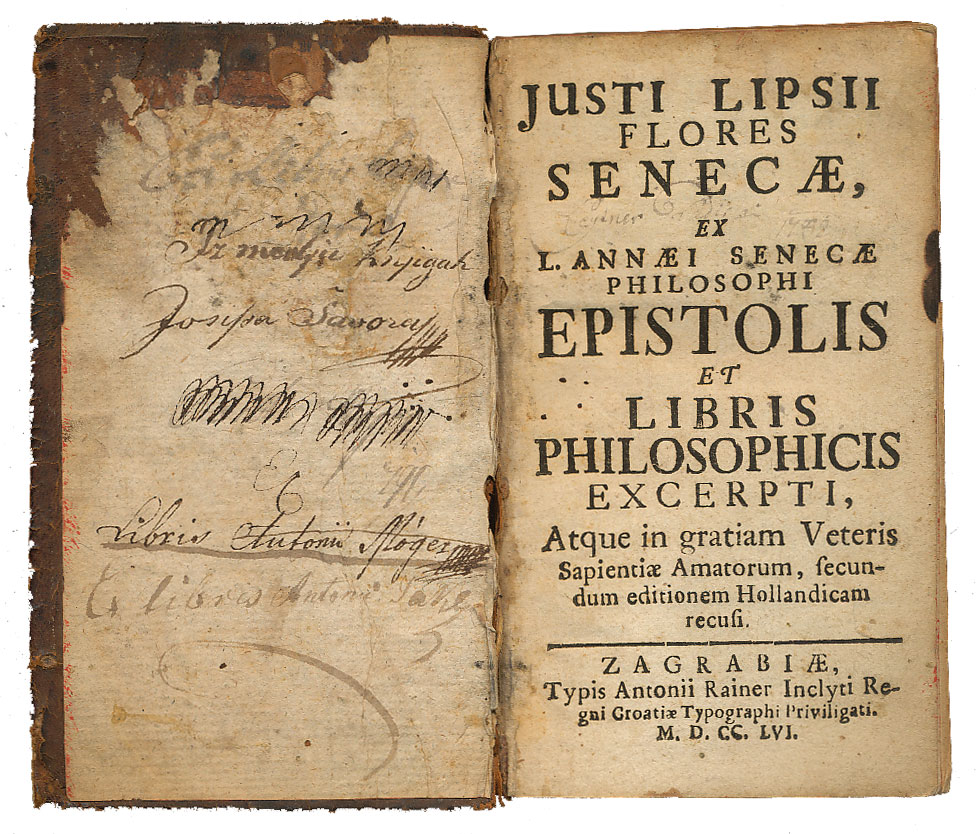 Iz medju knjigah
Josipa
Ex
Libris Antonii
Ex libris Antonii
JUSTI LIPSII
FLORES
SENECÆ,
EX
L. ANNÆI SENECÆ
PHILOSOPHI
EPISTOLIS
ET
LIBRIS
PHILOSOPHICIS
EXCERPTI,
Atque in gratiam Veteris
Sapientiæ Amatorum, ſecun-
dum editionem Hollandicam
recuſi.
ZAGRABIÆ,
Typis Antonii Rainer Inclyti Re-
gni Croatiæ Typographi Priviligati.
M. D. CC. LVI.